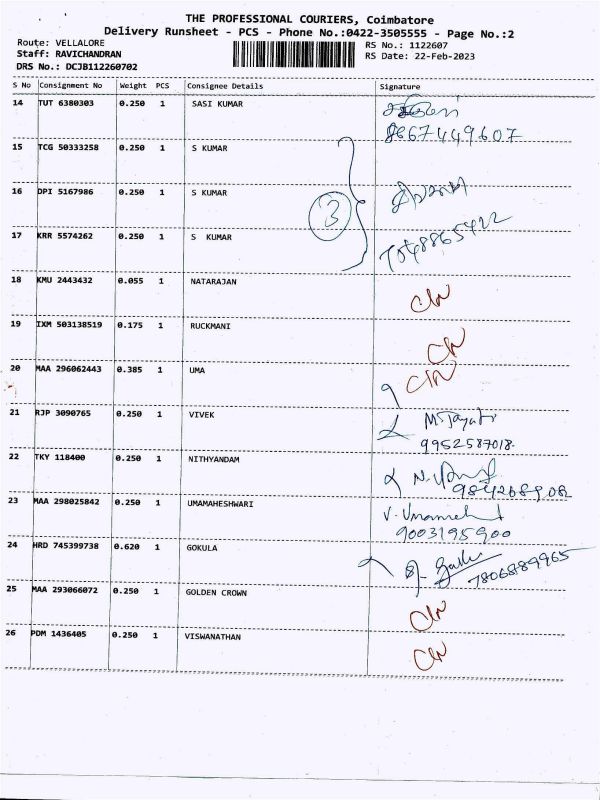 THE PROFESSIONAL COURIERS, Coimbatore
Delivery Runsheet - PCS - Phone No.:0422-3505555 - Page No.:2
Route: VELLALORE
RS No.: 1122607
Staff: RAVICHANDRAN
RS Date: 22-Feb-2023
DRS No.: DCJB112260702
S No Consignment No Weight PCS Consignee Details Signature
14 TUT 6380303 0.250 1 SASI KUMAR
8667449607
15 TCG 50333258 0.250 1 S KUMAR
16 DPI 5167986 0.250 1 S KUMAR
3
17 KRR 5574262 0.250 1 S KUMAR
7048865422
18 KMU 2443432 0.055 1 NATARAJAN
19 IXM 503138519 0.175 1 RUCKMANI
20 MAA 296062443 0.385 1 UMA
21 RJP 3090765 0.250 1 VIVEK
9952587018
22 TKY 118400 0.250 1 NITHYANDAM
9842689082
23 MAA 298025842 0.250 1 UMAMAHESHWARI
9003195900
24 HRD 745399738 0.620 1 GOKULA
7806889965
25 MAA 293066072 0.250 1 GOLDEN CROWN
26 PDM 1436405 0.250 1 VISWANATHAN